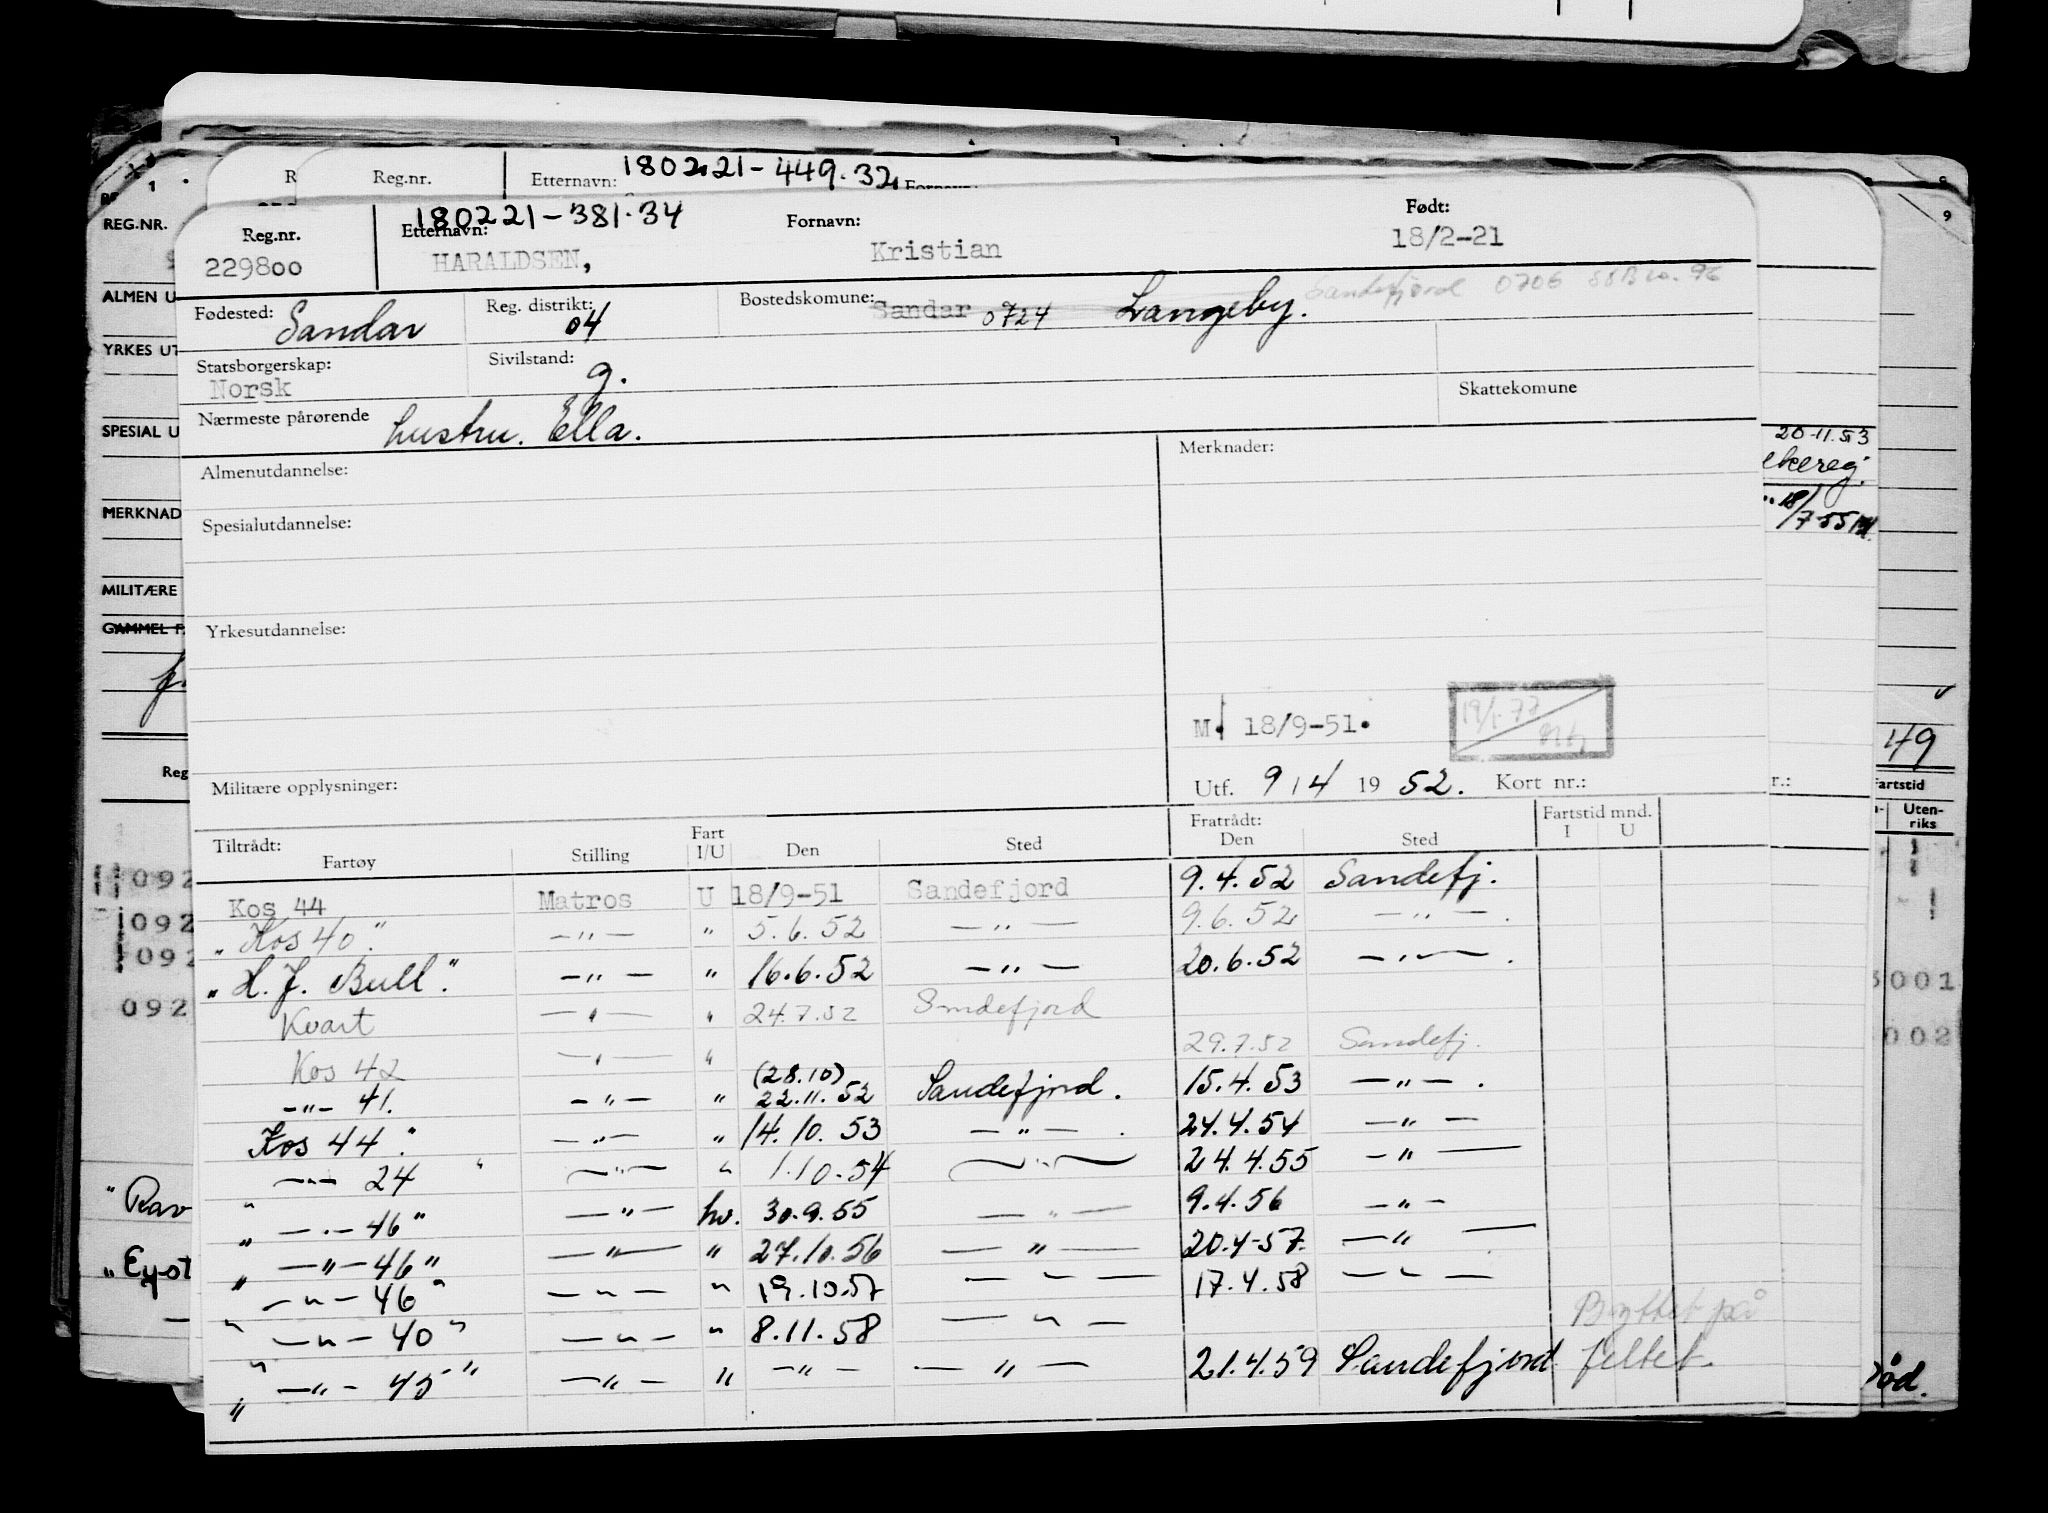 R
Reg.nr. Etternavn: 180221-449.32 Fornavn:
REG.NR.
ALMEN U
YRKES UT
SPESIAL U
MERKNAD
MILITÆRE
GAMMEL F
Reg
092
092
092
092
"Rav
"Eyst
180221-381.34
Reg.nr. Etternavn: Fornavn: Født:
229800 HARALDSEN, Kristian 18/2-21
Fødested: Sandar Reg. distrikt: 04 Bostedskomune: Sandar 0724 Langeby. Sandefjord 0706
Statsborgerskap: Norsk Sivilstand: g.
Skattekomune
Nærmeste pårørende hustru. Ella.
Almenutdannelse: Merknader:
Spesialutdannelse:
Yrkesutdannelse:
M. 18/9-51. 19/1.77
Militære opplysninger: Utf. 9/4 1952. Kort nr.:
Tiltrådt: Fratrådt: Fartstid mnd.
Fartøy Stilling Fart I/U Den Sted Den Sted I U
Kos 44 Matros U 18/9-51 Sandefjord 9.4.52 Sandefj.
"Kos 40" —"— " 5.6.52 —"— 9.6.52 —"—.
"H. J. Bull" —"— " 16.6.52 —"— 20.6.52 —"—.
Kvart —"— " 24.7.52 Sndefjord
Kos 42 —"— " 29.7.52 Sandefj.
—"— 41. —"— " (28.10) 22.11.52 Sandefjord. 15.4.53 —"—.
Kos 44" —"— " 14.10.53 —"—. 24.4.54 —"—
—"— 24" —"— " 1.10.54 —"— 24.4.55 —"—
" —"— 46" —"— hv. 30.9.55 —"— 9.4.56 —"—
" —"— 46" —"— " 27.10.56 —"— 20.4-57. —"—
" —"— 46" —"— " 19.10.57 —"— 17.4.58 —"—
" —"— 40" —"— " 8.11.58 —"— Byttet på
" —"— 45" —"— " —"— —"— 21.4.59 Sandefjord feltet.
9
20-11.53
18/7-55
49
Fartstid
r.: Uten-riks
001
002
død.